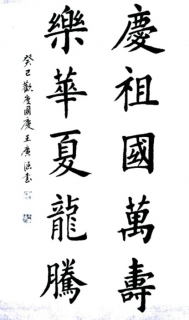 慶祖國萬壽
樂華夏龍騰
癸巳歡度國慶王廣泓書